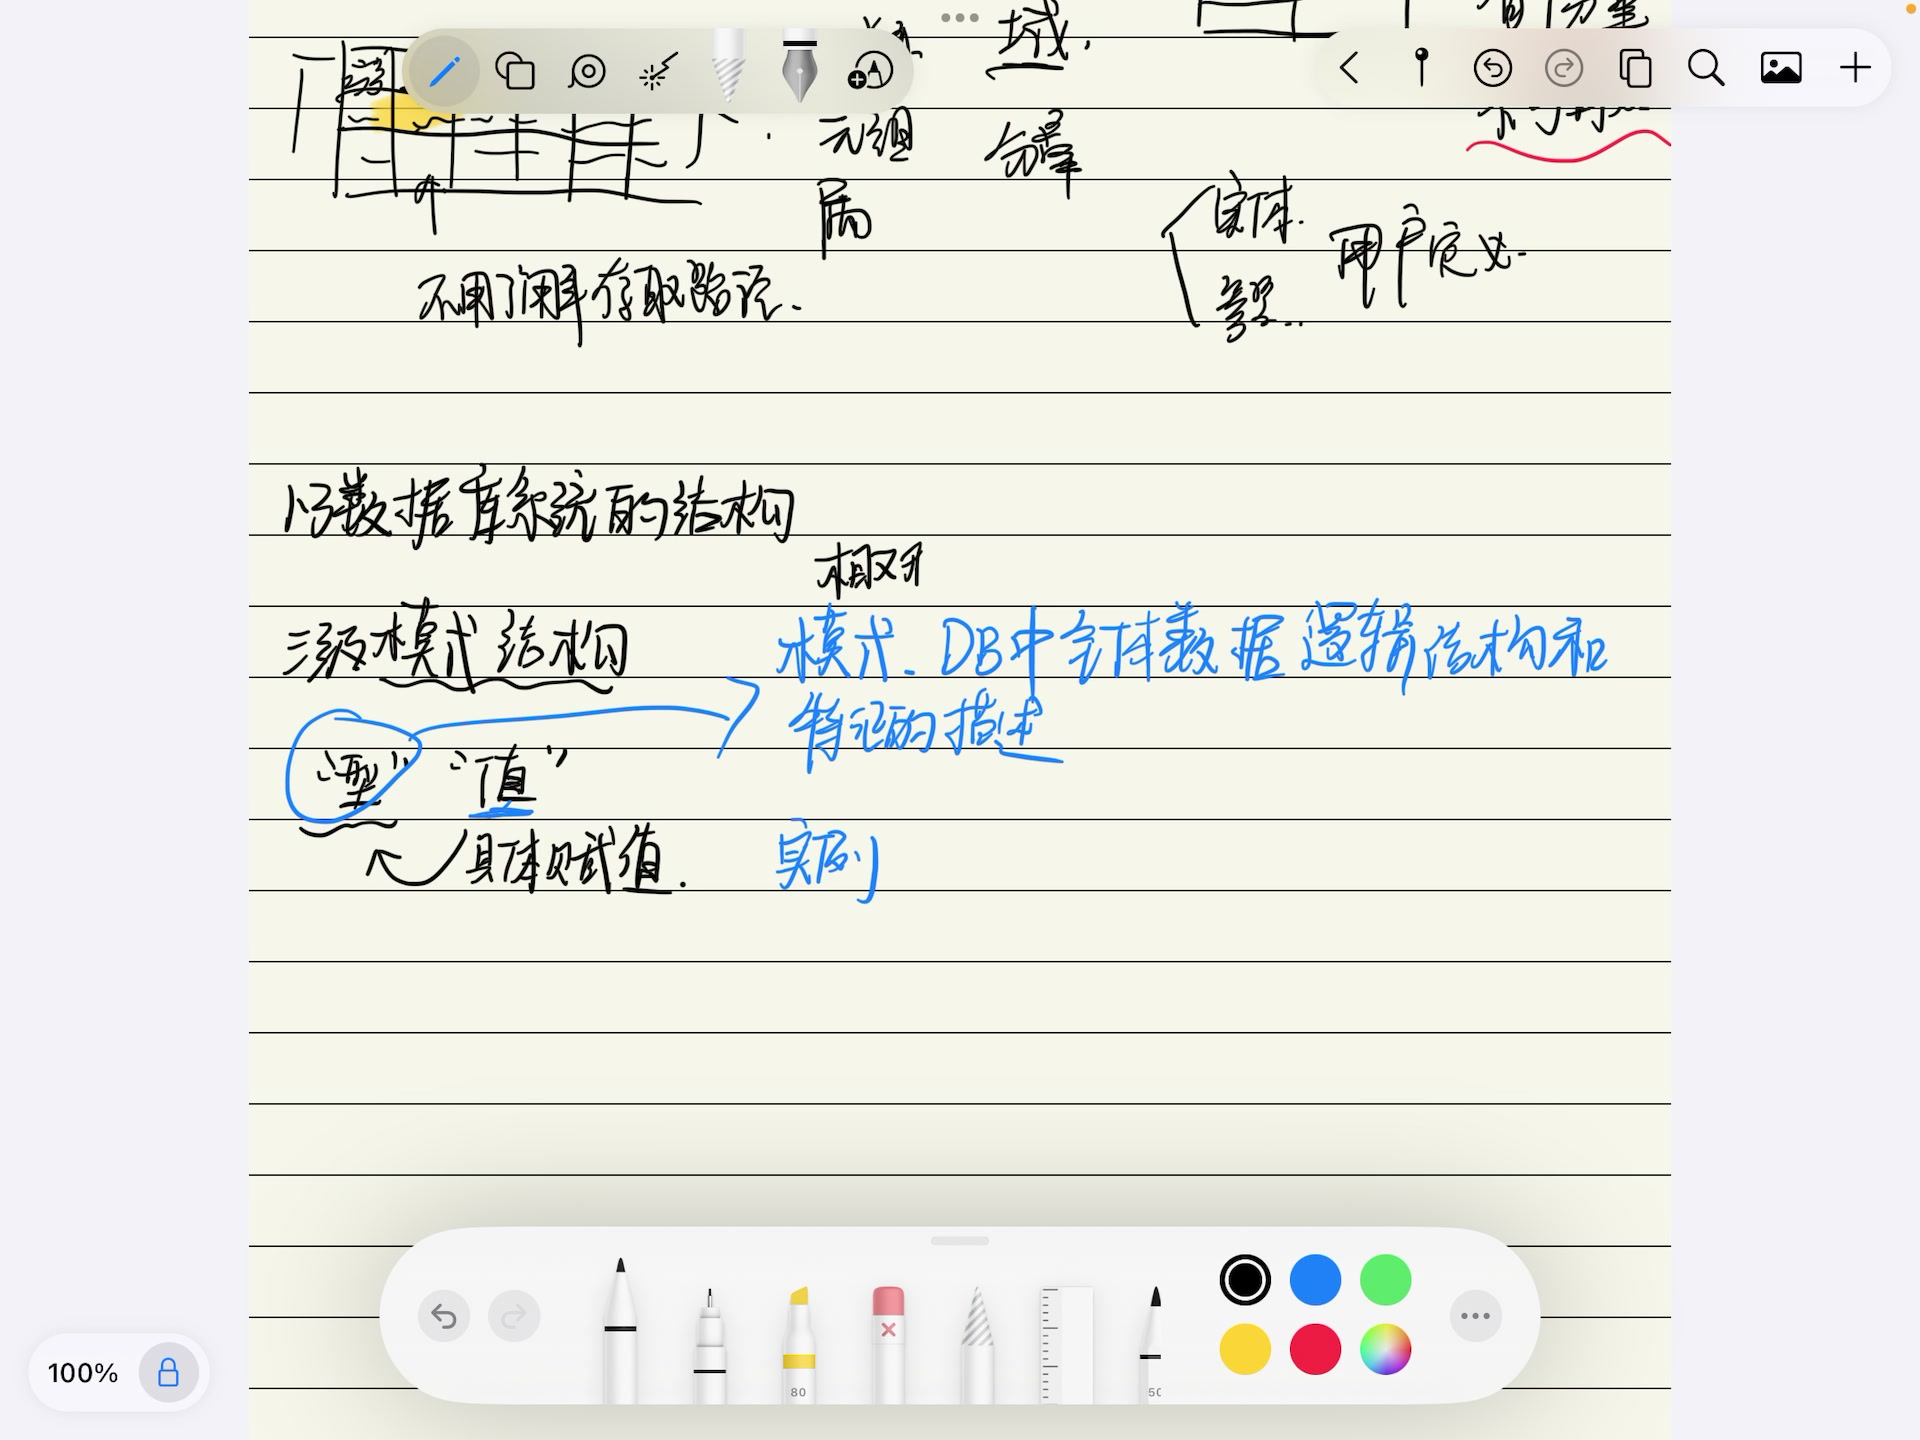 域.
元组 分量
不用了解存取路径.
实体.
用户定义.
参照..
1.3数据库系统的结构
三级模式结构
模式. DB中全体数据逻辑结构和
特征的描述
“型” “值”
具体赋值.
实例
80
50
100%